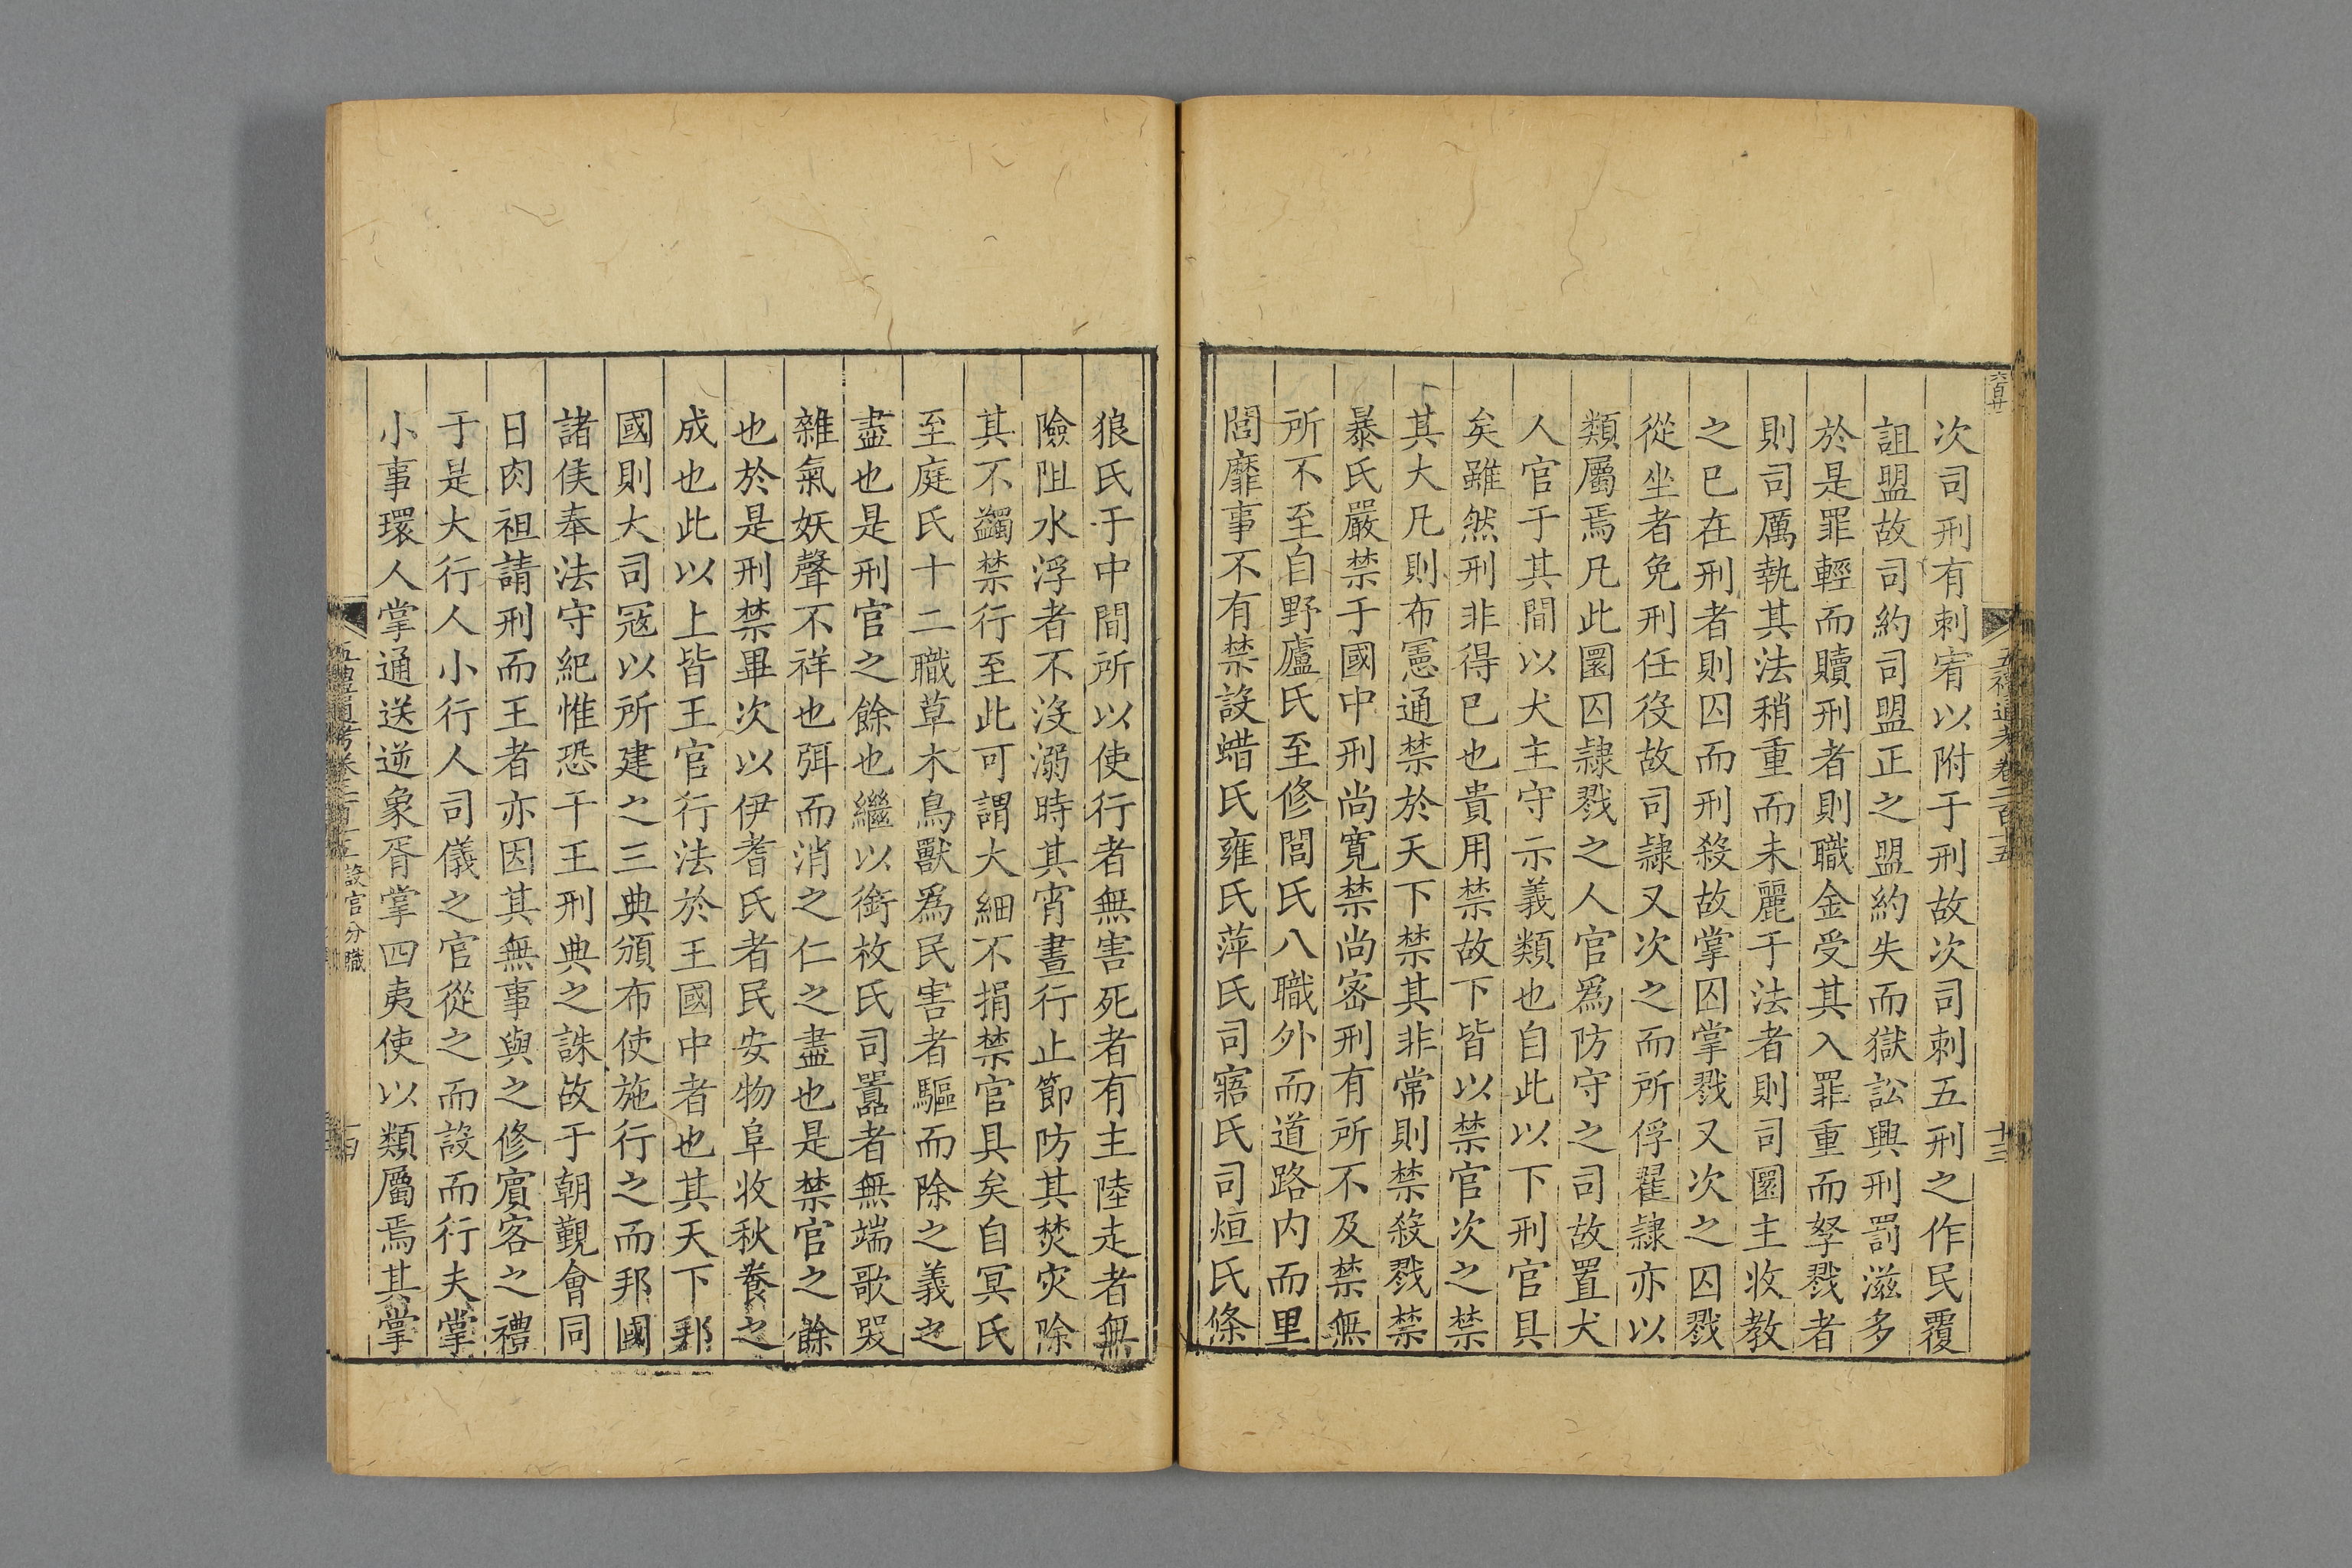 次司刑有刺宥以附于刑故次司刺五刑之作民覆
詛盟故司約司盟正之盟約失而獄訟興刑罰滋多
於是罪輕而贖刑者則職金受其入罪重而孥戮者
則司厲執其法稍重而未麗于法者則司圜主收教
之已在刑者則囚而刑殺故掌囚掌戮又次之囚戮
從坐者免刑任役故司隸又次之而所俘翟隸亦以
類屬焉凡此圜囚隸戮之人官爲防守之司故置犬
人官于其間以犬主守示義類也自此以下刑官具
矣雖然刑非得已也貴用禁故下皆以禁官次之禁
其大凡則布憲通禁於天下禁其非常則禁殺戮禁
暴氏嚴禁于國中刑尚寬禁尚宻刑有所不及禁無
所不至自野廬氏至修閭氏八職外而道路内而里
閭靡事不有禁設蜡氏雍氏萍氏司寤氏司烜氏條
狼氏于中間所以使行者無害死者有主陸走者無
險阻水浮者不没溺時其宵晝行止節防其焚灾除
其不蠲禁行至此可謂大細不捐禁官具矣自冥氏
至庭氏十二職草木鳥獸爲民害者驅而除之義之
盡也是刑官之餘也繼以銜枚氏司嚻者無端歌哭
雜氣妖聲不祥也弭而消之仁之盡也是禁官之餘
也於是刑禁畢次以伊耆氏者民安物阜收秋養之
成也此以上皆王官行法於王國中者也其天下邦
國則大司宼以所建之三典頒布使施行之而邦國
諸侯奉法守紀惟恐干王刑典之誅故于朝覲會同
日肉袒請刑而王者亦因其無事與之修賓客之禮
于是大行人小行人司儀之官從之而設而行夫掌
小事環人掌通送逆象胥掌四夷使以類屬焉其掌
五禮通考卷二百十五 十三
設官分職 十四